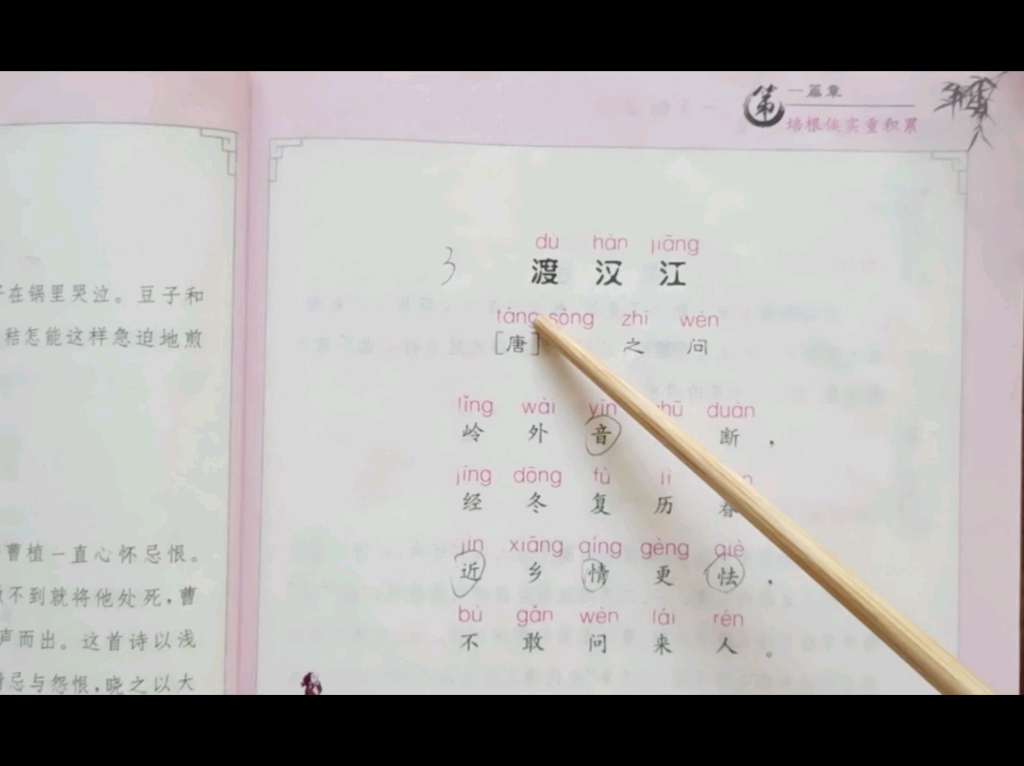 一篇章
第
培根俟实重积累
子在锅里哭泣。豆子和
秸怎能这样急迫地煎
曹植一直心怀忌恨。
不到就将他处死，曹
声而出。这首诗以浅
忌与怨恨，晓之以大
3
dù hàn jiāng
渡汉江
táng sòng zhī wèn
[唐] 之问
lǐng wài yīn shū duàn
岭外音 断，
jīng dōng fù lì
经冬复历春
jìn xiāng qíng gèng qiè
近乡情更怯，
bù gǎn wèn lái rén
不敢问来人。